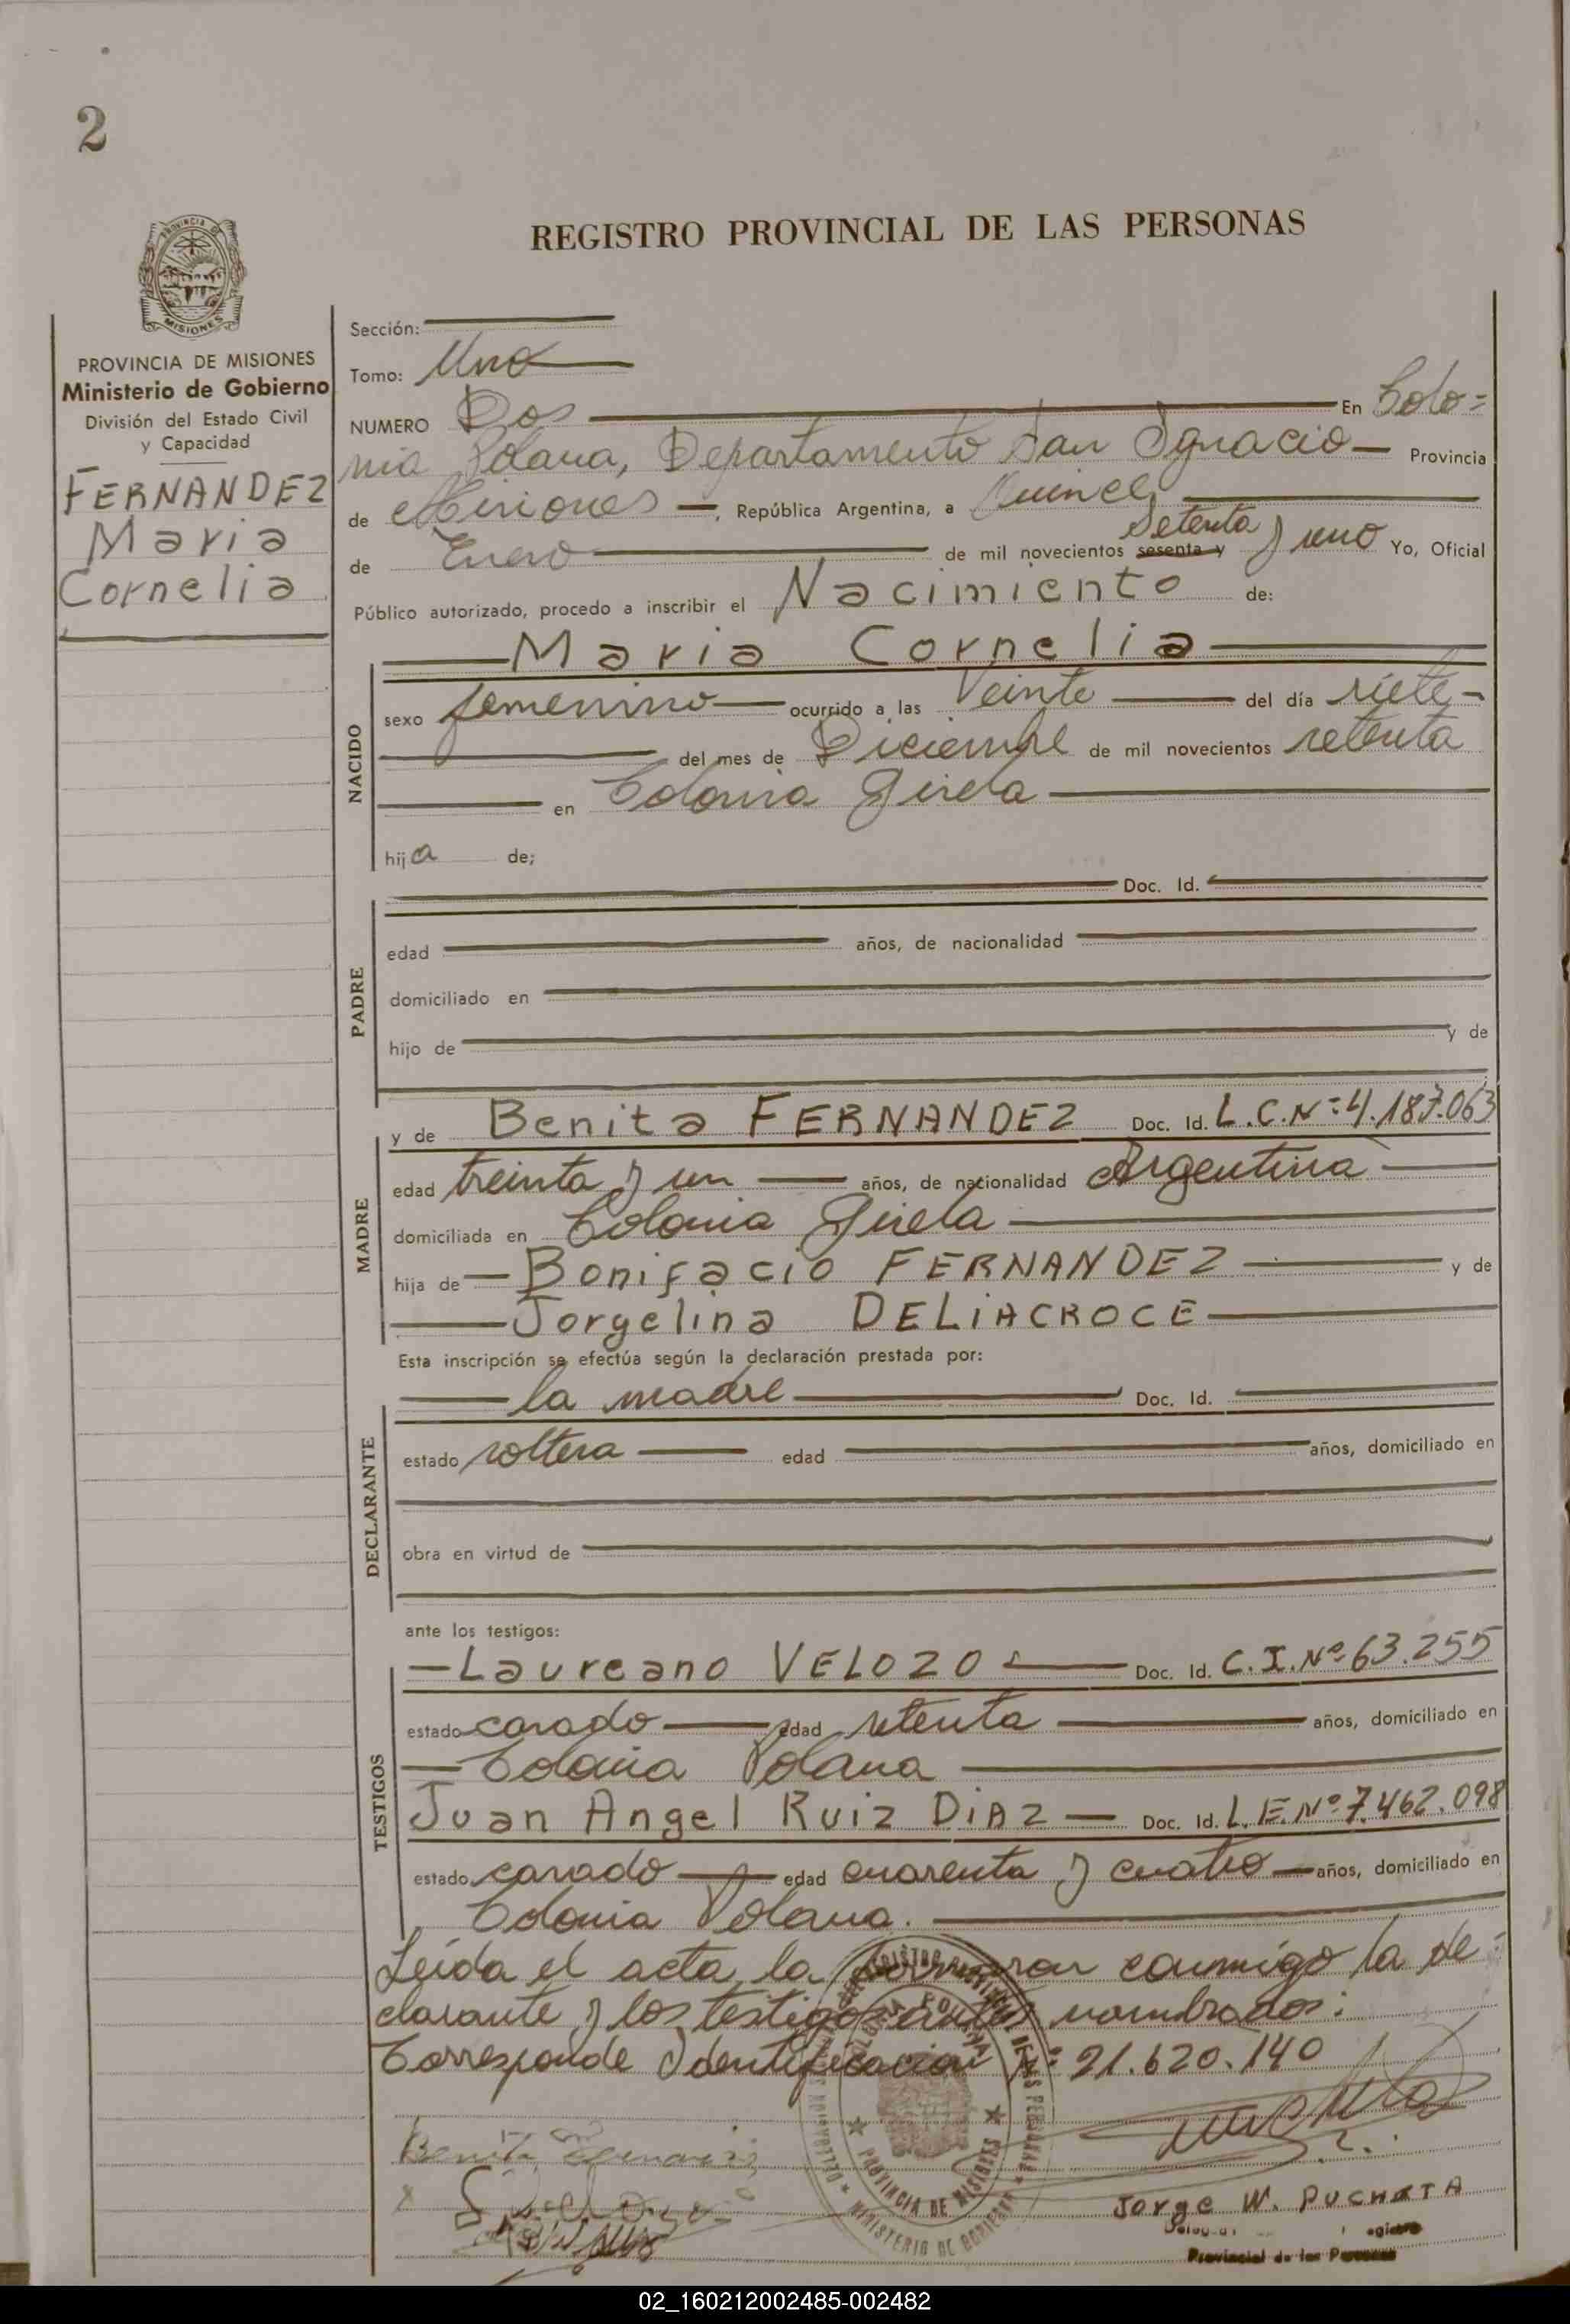 2
REGISTRO PROVINCIAL DE LAS PERSONAS
PROVINCIA DE MISIONES
Ministerio de Gobierno
División del Estado Civil
y Capacidad
FERNANDEZ
Maria
Cornelia
Sección:
Tomo: Uno
NUMERO Dos En Colo=
nia Polana, Departamento San Ignacio Provincia
de Misiones, República Argentina, a Quince
de Enero de mil novecientos sesenta y Setenta y uno Yo, Oficial
Público autorizado, procedo a inscribir el Nacimiento de:
Maria Cornelia
NACIDO
sexo femenino ocurrido a las Veinte del día siete
del mes de Diciembre de mil novecientos setenta
en Colonia Gisela
hija de;
PADRE
Doc. Id.
edad años, de nacionalidad
domiciliado en
hijo de y de
MADRE
y de Benita FERNANDEZ Doc. Id. L.C.Nº 4.187.063
edad treinta y un años, de nacionalidad Argentina
domiciliada en Colonia Gisela
hija de Bonifacio FERNANDEZ y de
Jorgelina DELIACROCE
Esta inscripción se efectúa según la declaración prestada por:
DECLARANTE
la madre Doc. Id.
estado soltera edad años, domiciliado en
obra en virtud de
ante los testigos:
TESTIGOS
Laureano VELOZO Doc. Id. C.I.Nº 63.255
estado casado edad setenta años, domiciliado en
Colonia Polana
Juan Angel Ruiz DiAZ Doc. Id. L.E.Nº 7.462.098
estado casado edad cuarenta y cuatro años, domiciliado en
Colonia Polana.
Leida el acta, la firmaron conmigo la de=
clarante y los testigos antes nombrados:
Corresponde Identificacion Nº 21.620.140
Jorge W. PUCHATA
Provincial de las Personas
02_160212002485-002482